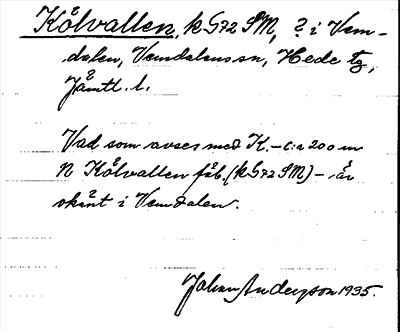 Kölvallen, k G72 SM, ? i Vem-
dalen, Vemdalens sn, Hede tg,
Jämtl. l.
Vad som avses med K. – c:a 200 m
N Kölvallen fäb. (k G72 SM) – är
okänt i Vemdalen.
Johan Anderson 1935.